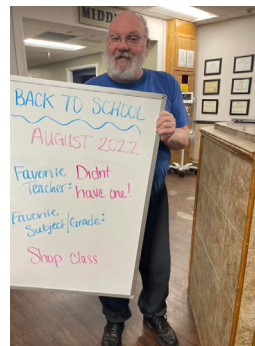 MIDD
BACK TO SCHOOL
AUGUST 2022
Favorite Didnt
Teacher: have one!
Favorite
Subject/Grade:
Shop Class